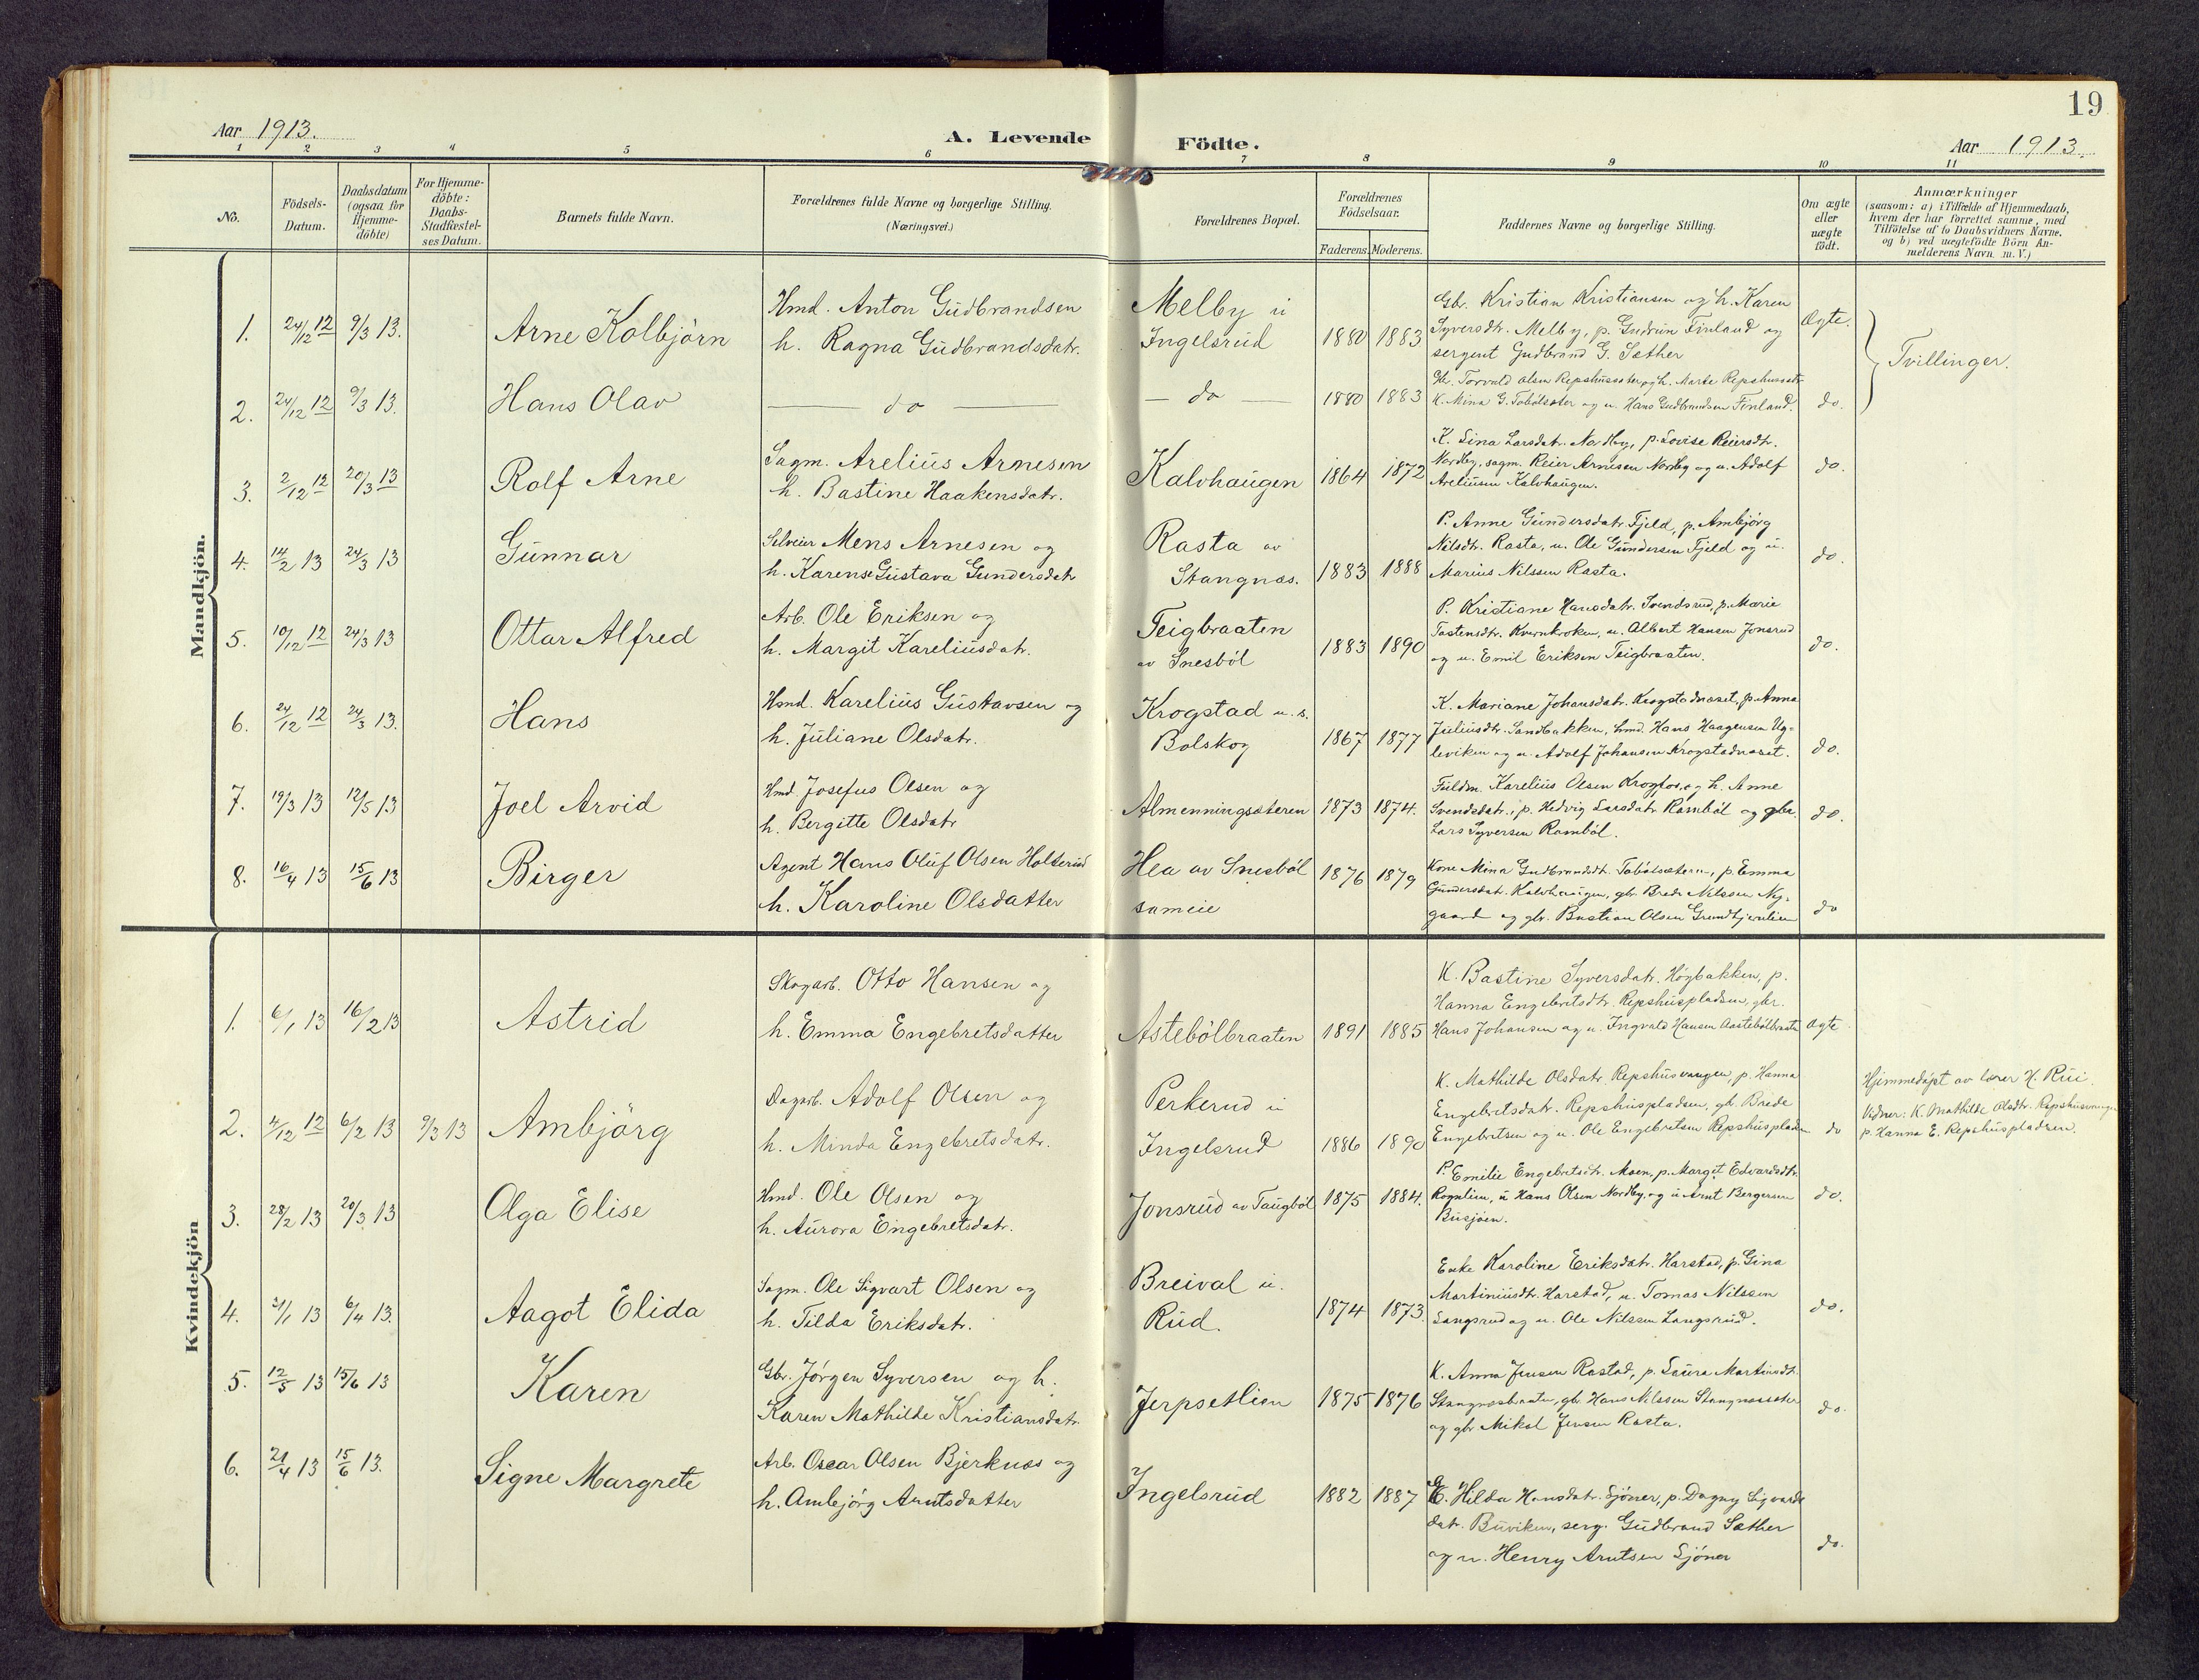 19
Aar 1913.
A. Levende Födte.
Aar 1913.
1 2 3 4 5 6 7 8 9 10 11
No.
Födsels-
Datum.
Daabsdatum
(ogsaa for
Hjemme-
döbte)
For Hjemme-
döbte:
Daabs-
Stadfæstel-
ses Datum.
Barnets fulde Navn.
Forældrenes fulde Navne og borgerlige Stilling.
(Næringsvei.)
Forældrenes Bopæl.
Forældrenes
Födselsaar.
Faderens. Moderens.
Faddernes Navne og borgerlige Stilling.
Om ægte
eller
uægte
födt.
Anmærkninger
(saasom: a) i Tilfælde af Hjemmedaab,
hvem der har forrettet samme, med
Tilföielse af to Daabsvidners Navne.
og b) ved uægtefödte Börn An-
melderens Navn m.V.)
Mandkjön.
1. 24/12 12 9/3 13. Arne Kolbjörn
Hmd. Anton Gudbrandsen
h. Ragna Gudbrandsdatr.
Melby u
Ingelsrud
1880 1883
Gbr. Kristian Kristiansen og h. Karen
Syversdtr. Melby, p. Gudrun Finland og
sergent Gudbrand G. Sæther
Ægte.
Tvillinger.
2. 24/12 12 9/3 13. Hans Olav
— do —
— do —
1880 1883
Gbr. Torvald Olsen Repshussæter og h. Marte Repshussætr
K. Mina G. Tobölsæter og u. Hans Gudbrandsen Finland.
do.
3. 2/12 12 20/3 13 Rolf Arne
Sagm. Arelius Arnesen
h. Bastine Haakensdatr.
Kalvhaugen
1864 1872
K. Lina Larsdatr. Nordby, p. Lovise Reiersdtr.
Nordby, sagm. Reier Arnesen Nordby og u. Adolf
Areliusen Kalvhaugen.
do.
4. 14/2 13 24/3 13 Gunnar
Selveier Mens Arnesen og
h. Karense Gustava Gundersdatr
Rasta av
Stangnæs.
1883 1888
P. Anne Gundersdatr. Fjeld, p. Ambjörg
Nilsdtr. Rasta, u. Ole Gundersen Fjeld og u.
Marius Nilssen Rasta.
do.
5. 10/12 12 24/3 13 Ottar Alfred
Arb. Ole Eriksen og
h. Margit Kareliusdatr.
Teigbraaten
av Snesböl
1883 1890
P. Kristiane Hansdatr. Svendsrud, p. Marie
Tostensdtr. Kvernkroken, u. Albert Hansen Jonsrud
og u. Emil Eriksen Teigbraaten.
do.
6. 24/12 12 24/3 13. Hans
Hmd. Karelius Gustavsen og
h. Juliane Olsdatr.
Krogstad u. s.
Bolskog
1867 1877
K. Mariane Johansdatr. Krogstadnæset, p. Anna
Juliusdtr. Sandbakken, hmd. Hans Haagensen Ug-
leviken og u. Adolf Johansen Krogstadnæset.
do.
7. 19/3 13 12/5 13 Joel Arvid
Hmd. Josefus Olsen og
h. Bergitte Olsdatr
Almenningsæteren
1873 1874.
Fuldm. Karelius Olsen Krogfos, og h. Anne
Svendsdatr., p. Hedvig Larsdatr Ramböl og gbr.
Lars Syversen Ramböl.
do.
8. 16/4 13 15/6 13 Birger
Agent Hans Oluf Olsen Holterud
h. Karoline Olsdatter
Hea av Snesböl
sameie
1876 1879
Kone Mina Gudbrandsdt. Tobölsæteren, p. Emma
Gundersdat. Kalvhaugen, gbr. Brede Nilssen Ny-
gaard og gbr. Bastian Olsen
do
Kvindekjön
1. 6/1 13 16/2 13 Astrid
Skogarb. Otto Hansen og
h. Emma Engebretsdatter
Astebölbraaten
1891 1885
K. Bastine Syversdatr. Högbakken, p.
Hanna Engebretsdtr. Repshuspladsen, gbr.
Hans Johansen og u. Ingvald Hansen Aastebölbraat
Ægte
2. 4/12 12 6/2 13 9/3 13 Ambjörg
Dagarb. Adolf Olsen og
h. Minda Engebretsdatr.
Perkerud u
Ingelsrud
1886 1890
K. Mathilde Olsdatr. Repshusvangen, p. Hanna
Engebretsdatr. Repshuspladsen, gb. Brede
Engebretsen og u. Ole Engebretsen Repshuspladsen
do
Hjemmedöpt av lærer H. Rui.
Vidner: K. Mathilde Olsdtr. Repshusvangen
p. Hanna E. Repshuspladsen.
3. 28/2 13 20/3 13 Olga Elise
Hmd. Ole Olsen og
h. Aurora Engebretsdatr.
Jonsrud av Taugböl
1875 1884.
P. Emilie Engebretsdtr. Moen, p. Marget Edvardsdtr.
Rognlien, u Hans Olsen Nordby og u Arnt Bergersen
Busjöen.
do.
4. 21/1 13 6/4 13. Aagot Elida
Sagm. Ole Sigvart Olsen og
h. Tilda Eriksdatr.
Breival u.
Rud.
1874 1873.
Enke Karoline Eriksdatr. Harstad, p. Gina
Martiniusdtr. Harstad, u. Tomas Nilssen
Langsrud og u. Ole Nilssen Langsrud.
do.
5. 12/5 13 15/6 13 Karen
Gbr. Jörgen Syversen og h.
Karen Mathilde Kristiansdatr
Jerpsetlien
1875 1876
K. Anna Jensen Rastad, p. Laura Martinsdt.
Stangnæsbraaten, gbr. Hans Nilssen Stangnæssæter
og gbr Mikal Jensen Rasta.
do.
6. 21/4 13 15/6 13. Signe Margrete
Arb. Oscar Olsen Bjerknæs og
h. Ambjörg Arntsdatter
Ingelsrud
1882 1887
Hilda Hansdatr. Sjöner, p. Dagny Sigvards
datr. Buviken, serg. Gudbrand Sæther
og u. Henry Arntsen Sjöner
do.